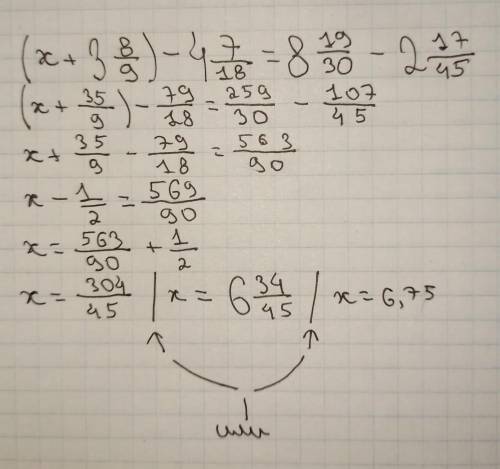 (x + 3 8/9) - 4 7/18 = 8 19/30 - 2 17/45
(x + 35/9) - 79/18 = 259/30 - 107/45
x + 35/9 - 79/18 = 563/90
x - 1/2 = 569/90
x = 563/90 + 1/2
x = 304/45 | x = 6 34/45 | x = 6,75
или